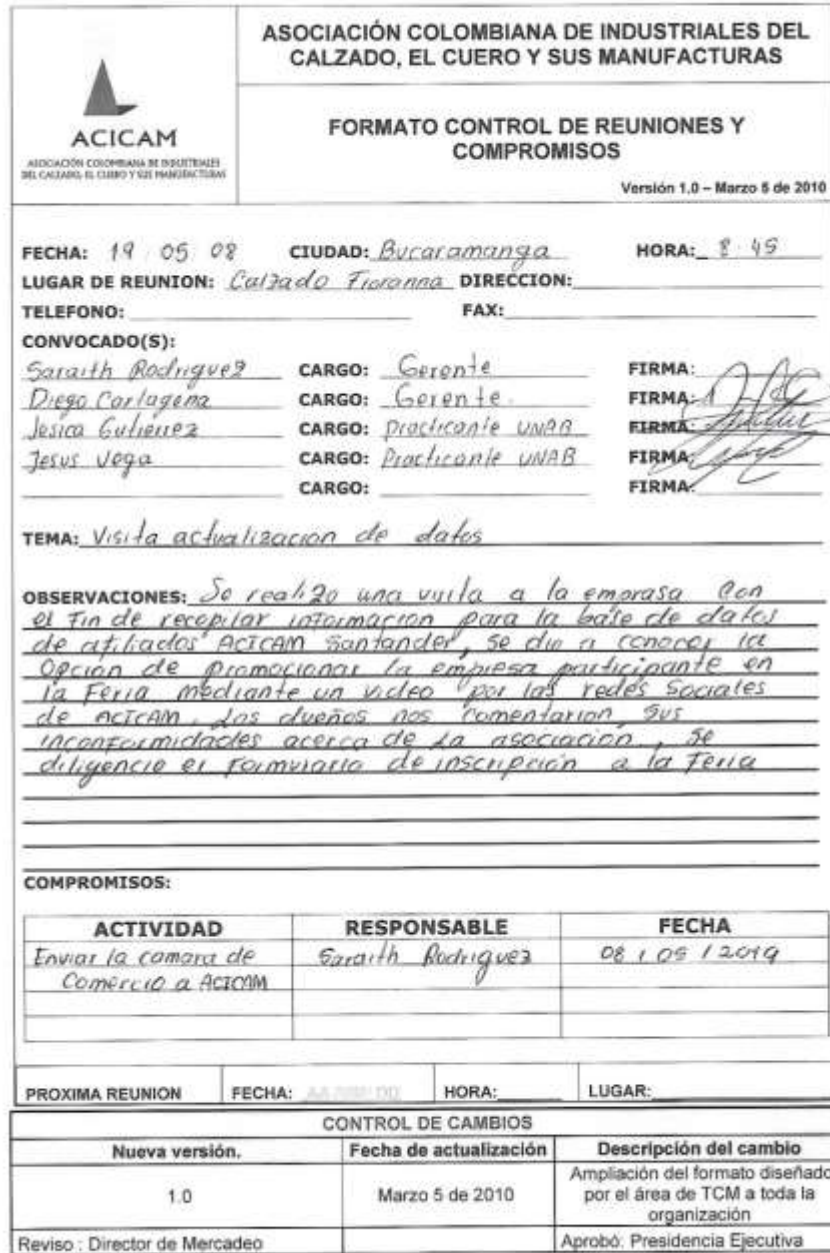 ASOCIACIÓN COLOMBIANA DE INDUSTRIALES DEL
CALZADO, EL CUERO Y SUS MANUFACTURAS
ACICAM
ASOCIACIÓN COLOMBIANA DE INDUSTRIALES
DEL CALZADO, EL CUERO Y SUS MANUFACTURAS
FORMATO CONTROL DE REUNIONES Y
COMPROMISOS
Versión 1.0 – Marzo 5 de 2010
FECHA: 19 05 08 CIUDAD: Bucaramanga HORA: 8:45
LUGAR DE REUNION: Calzado Fioranna DIRECCION:
TELEFONO: FAX:
CONVOCADO(S):
Saraith Rodriguez CARGO: Gerente FIRMA:
Diego Cartagena CARGO: Gerente. FIRMA:
Jesica Gutierrez CARGO: Practicante UNAB FIRMA:
Jesus Vega CARGO: Practicante UNAB FIRMA:
CARGO: FIRMA:
TEMA: Visita actualizacion de datos
OBSERVACIONES: Se realizo una visita a la empresa con
el Fin de recopilar informacion para la base de datos
de afiliados ACICAM Santander, se dio a conocer la
Opcion de promocionar la empresa participante en
la Feria mediante un video por las redes Sociales
de ACICAM. Los dueños nos comentarion sus
inconformidades acerca de La asociacion, se
diligencio el Formulario de inscripción a la Feria
COMPROMISOS:
ACTIVIDAD RESPONSABLE FECHA
Enviar la camara de Saraith Rodriguez 08 / 05 / 2019
Comercio a ACICAM
PROXIMA REUNION FECHA: HORA: LUGAR:
CONTROL DE CAMBIOS
Nueva versión. Fecha de actualización Descripción del cambio
1.0 Marzo 5 de 2010 Ampliación del formato diseñado
por el área de TCM a toda la
organización
Reviso : Director de Mercadeo Aprobó: Presidencia Ejecutiva